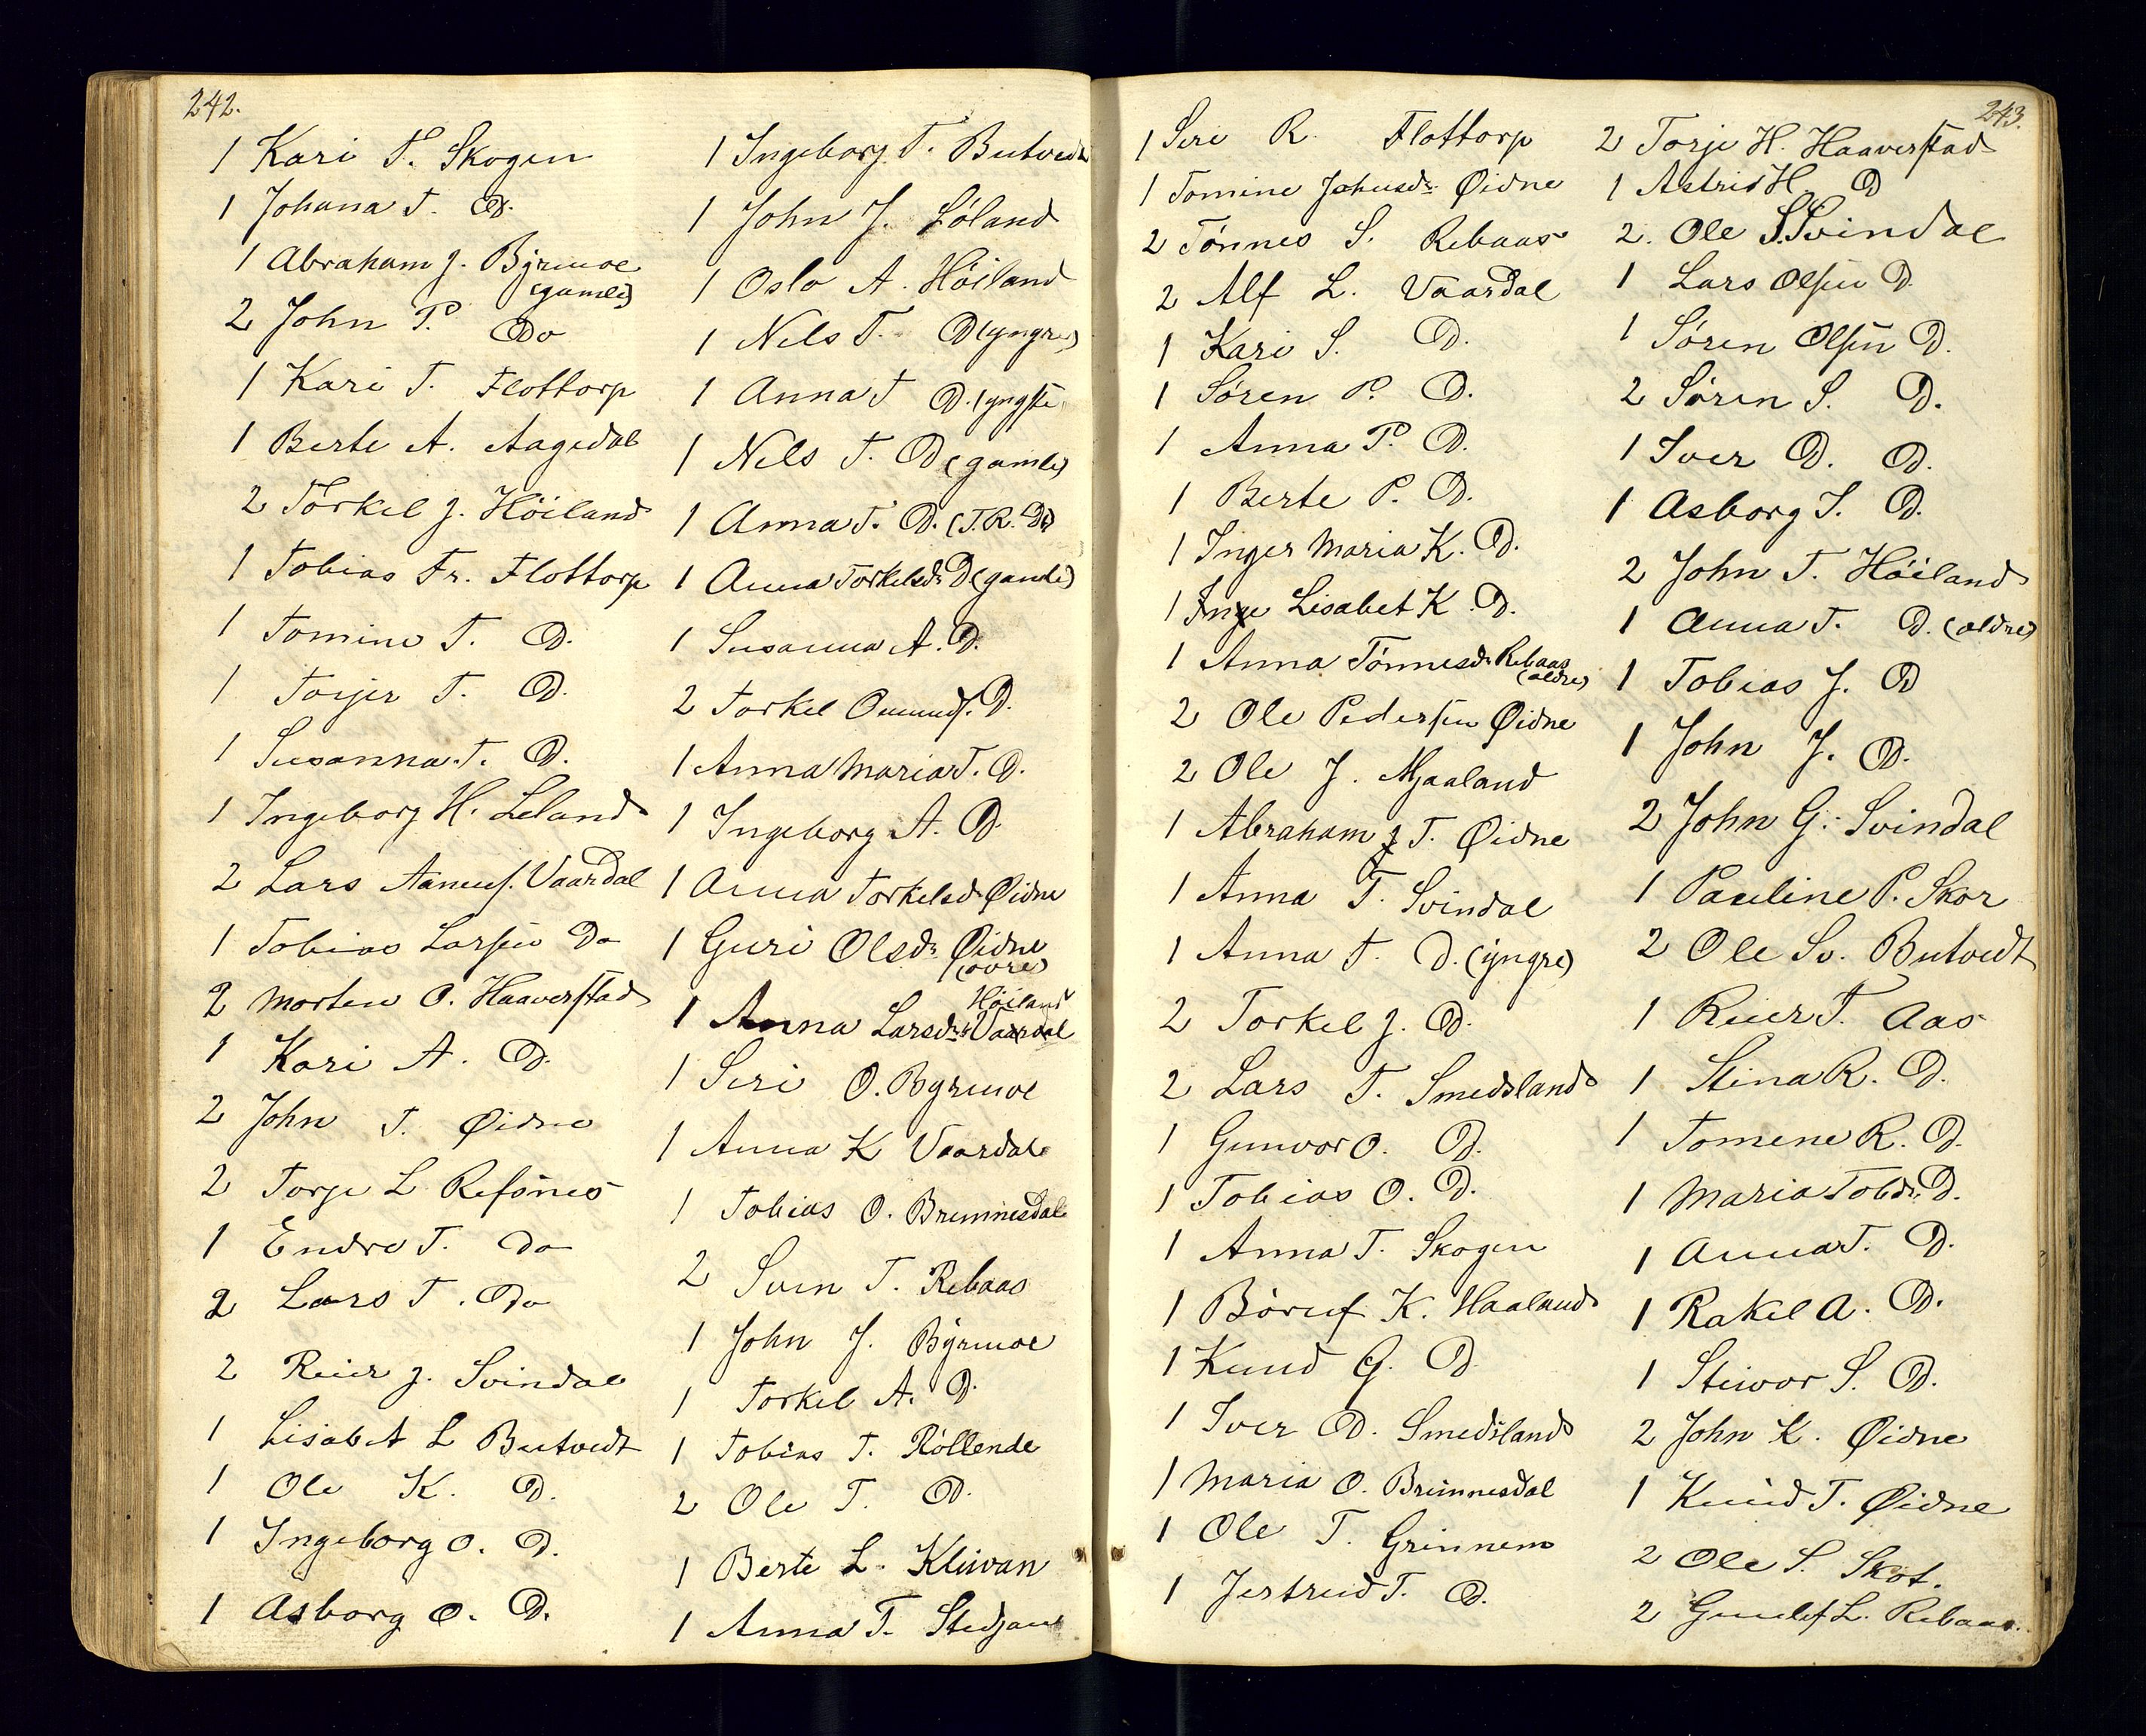 242.
1 Kari T. Skogen
1 Johana T. Do.
1 Abraham J. Byrmoe
(gamle)
2 John P. Do
1 Kari T. Flottorp
1 Berte A. Aagedal
2 Torkel J. Höiland
1 Tobias Fr. Flottorp
1 Tomine T. D.
1 Torjer T. D.
1 Susanna T. D.
1 Ingeborg H. Leland
2 Lars Aanens. Vaardal
1 Tobias Larsen Do
2 Morten O. Haaverstad
1 Kari A. D.
2 John T. Øidne
2 Torje L Refsnes
1 Endre T. Do
2 Lars T. Do
2 Reier J. Svindal
1 Lisabet L Butvedt
1 Ole K. D.
1 Ingeborg O. D.
1 Asborg O. D.
1 Ingeborg T. Butvedt
1 John J. Lóland
1 Oslo A. Höiland
1 Nels T. D (yngre)
1 Anna T D. (yngste
1 Nels T. D (gamle)
1 Anna T. D. (T.R. Dr)
1 Anna Torkelsdr D (gamle)
1 Susanna A. D.
2 Torkel Omunds. D.
1 Anna Maria T. D.
1 Ingeborg A. D.
1 Anna Torkelsd. Øidne
1 Guri Olsdr Øidne
(övre)
Höiland
1 Anna Larsdr Vaardal
1 Seri O. Byrmoe
1 Anna K Vaardal
1 Tobias O. Brunnesdal
2 Sven T. Rebaas
1 John J. Byrmoe
1 Torkel A. D.
1 Tobias T. Röllende
2 Ole T. D.
1 Berte L. Kleivan
1 Anna T. Stedjan
243.
1 Seri R. Flottorp
1 Tomine Johnsdr. Øidne
2 Tönnes S. Rebaas
2 Alf L. Vaardal
1 Kari S. D.
1 Sören P. D.
1 Anna P. D.
1 Berte P. D.
1 Inger Maria K. D.
1 Inge Lisabet K. D.
1 Anna Tönnesdr Rebaas
(ældre)
2 Ole Pedersen Øidne
2 Ole J. Mjaaland
1 Abraham J T. Øidne
1 Anna T. Svindal
1 Anna T. D. (yngre)
2 Torkel J. D.
2 Lars T. Smedsland
1 Gunvor O. D.
1 Tobias O. D.
1 Anna T. Skogen
1 Böruf K. Haaland
1 Knud G. D
1 Iver D. Smedsland
1 Maria O. Brunnesdal
1 Ole T. Grinnem
1 Jertrud T. D.
2 Torje H. Haaverstad
1 Astrid H. D
2. Ole S. Svindal
1 Lars Olsen D.
1 Søren Olsen D.
2 Søren S. D.
1 Iver D. D.
1 Asborg I. D.
2 John T. Höiland
1 Anna T. D. (ældre)
1 Tobias J. D
1 John J. D.
2 John G. Svindal
1 Pauline P. Skor
2 Ole Sv. Butvedt
1 Reier T. Aas
1 Stina R. D.
1 Tomene R. D.
1 Maria Tobdr. D.
1 Anna T. D.
1 Rakel A. D.
1 Steivor S. D.
2 John K. Øidne
1 Knud T. Øidne
2 Ole S. Skot.
2 Gunlef L. Rebaas.